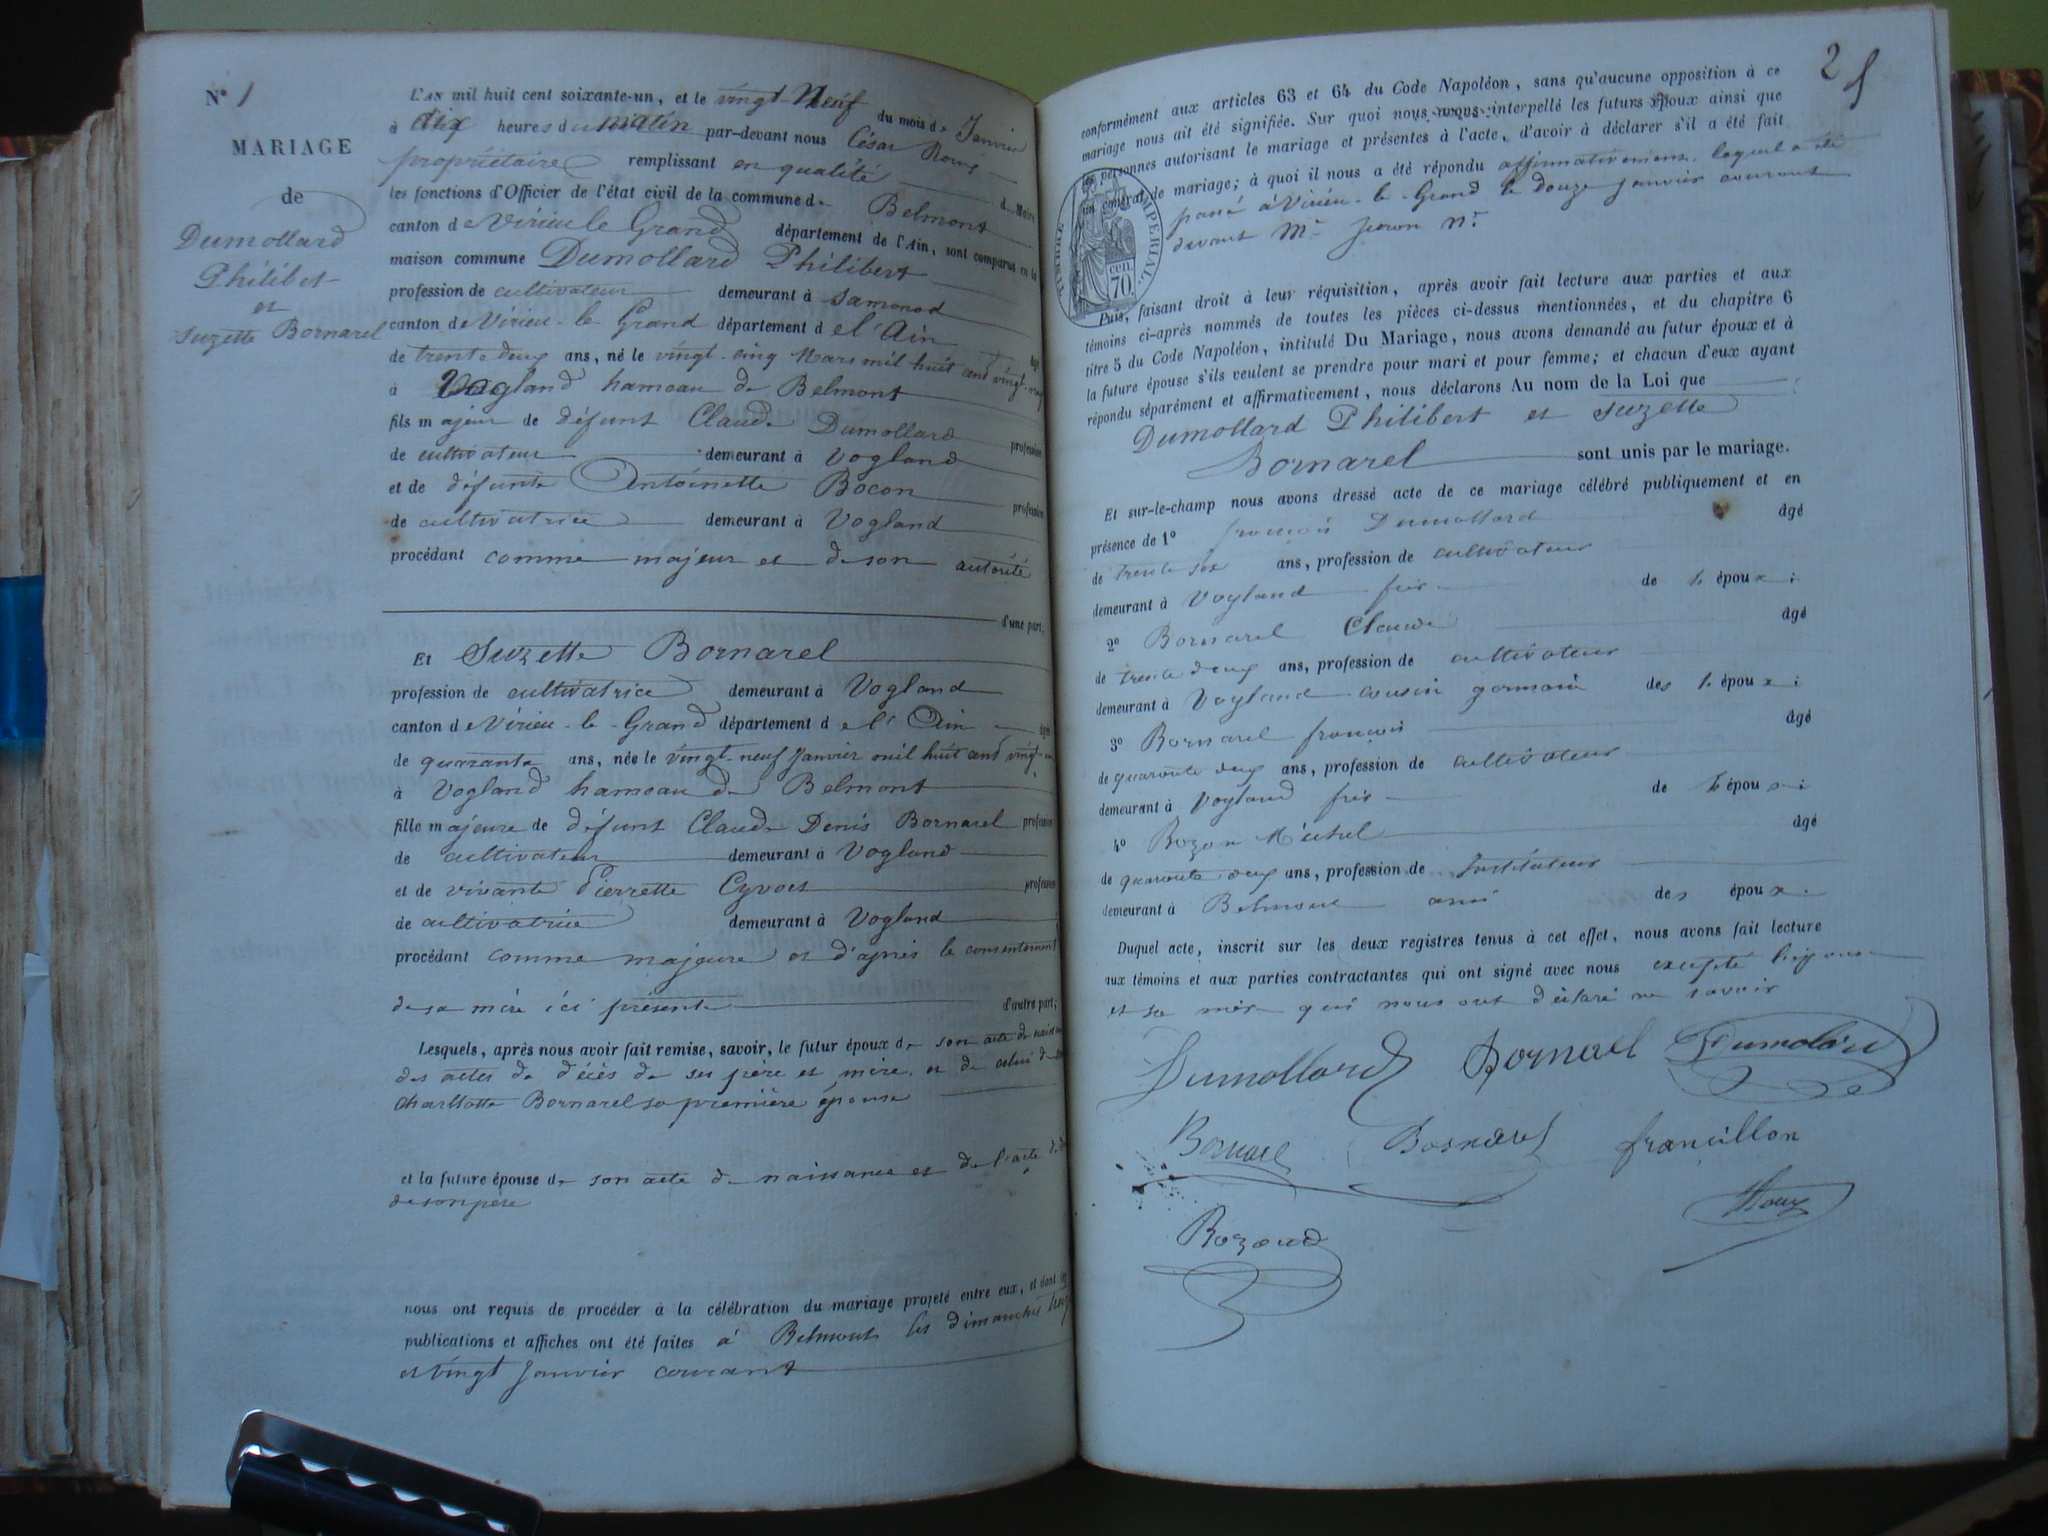 N° 1
MARIAGE
de
Dumollard
Philibert
et
Suzette Bornarel
L'AN mil huit cent soixante-un, et le vingt Neuf du mois de Janvier
à dix heures du matin par-devant nous César
propriétaire remplissant en qualité de Maire
les fonctions d'Officier de l'état civil de la commune de Belmont
canton de Virieu le Grand département de l'Ain, sont comparus en la
maison commune Dumollard Philibert
profession de cultivateur demeurant à Samonod
canton de Virieu-le-Grand département de l'Ain
de trente deux ans, né le vingt-cinq Mars mil huit cent vingt-
à Vogland hameau de Belmont
fils majeur de défunt Claude Dumollard profession
de cultivateur demeurant à Vogland
et de défunte Antoinette Bocon profession
de cultivatrice demeurant à Vogland
procédant comme majeur et de son autorité
d'une part,
Et Suzette Bornarel
profession de cultivatrice demeurant à Vogland
canton de Virieu-le-Grand département de l'Ain âgée
de quarante ans, née le vingt-neuf Janvier mil huit cent vingt-
à Vogland hameau de Belmont
fille majeure de défunt Claude Denis Bornarel profession
de cultivateur demeurant à Vogland
et de vivante Pierrette Cyvoct profession
de cultivatrice demeurant à Vogland
procédant comme majeure et d'après le consentement
de sa mère ici présente d'autre part;
Lesquels, après nous avoir fait remise, savoir, le futur époux de son acte de
des actes de décès de ses père et mère, et de celui de
Charllotte Bornarel sa première épouse
et la future épouse de son acte de naissance et de l'acte de
de son père
nous ont requis de procéder à la célébration du mariage projeté entre eux, et dont les
publications et affiches ont été faites à Belmont les dimanches
et vingt Janvier courant
2
conformément aux articles 63 et 64 du Code Napoléon, sans qu'aucune opposition à ce
mariage nous ait été signifiée. Sur quoi nous avons interpellé les futurs époux ainsi que
les personnes autorisant le mariage et présentes à l'acte, d'avoir à déclarer s'il a été fait
un contrat de mariage; à quoi il nous a été répondu affirmativement, lequel a été
passé à Virieu-le-Grand le douze Janvier courant
devant Me
TIMBRE IMPÉRIAL.
cen.
70
Puis, faisant droit à leur réquisition, après avoir fait lecture aux parties et aux
témoins ci-après nommés de toutes les pièces ci-dessus mentionnées, et du chapitre 6
titre 5 du Code Napoléon, intitulé Du Mariage, nous avons demandé au futur époux et à
la future épouse s'ils veulent se prendre pour mari et pour femme; et chacun d'eux ayant
répondu séparément et affirmativement, nous déclarons Au nom de la Loi que
Dumollard Philibert et Suzette
Bornarel sont unis par le mariage.
Et sur-le-champ nous avons dressé acte de ce mariage célébré publiquement et en
présence de 1° françois Dumollard âgé
de trente six ans, profession de cultivateur
demeurant à Vogland frère de l'époux;
2° Bornarel Claude âgé
de trente deux ans, profession de cultivateur
demeurant à Vogland cousin germain des époux;
3° Bornarel françois âgé
de quarante deux ans, profession de cultivateur
demeurant à Vogland frère de l'épouse;
4° Bozon Michel âgé
de quarante deux ans, profession de Instituteur
demeurant à Belmont ami des époux.
Duquel acte, inscrit sur les deux registres tenus à cet effet, nous avons fait lecture
aux témoins et aux parties contractantes qui ont signé avec nous excepté l'épouse
et sa mère qui nous ont déclaré ne savoir
Dumollard Bornarel Dumolard
Bornarel Bornarel francillon
Roux
Bozond